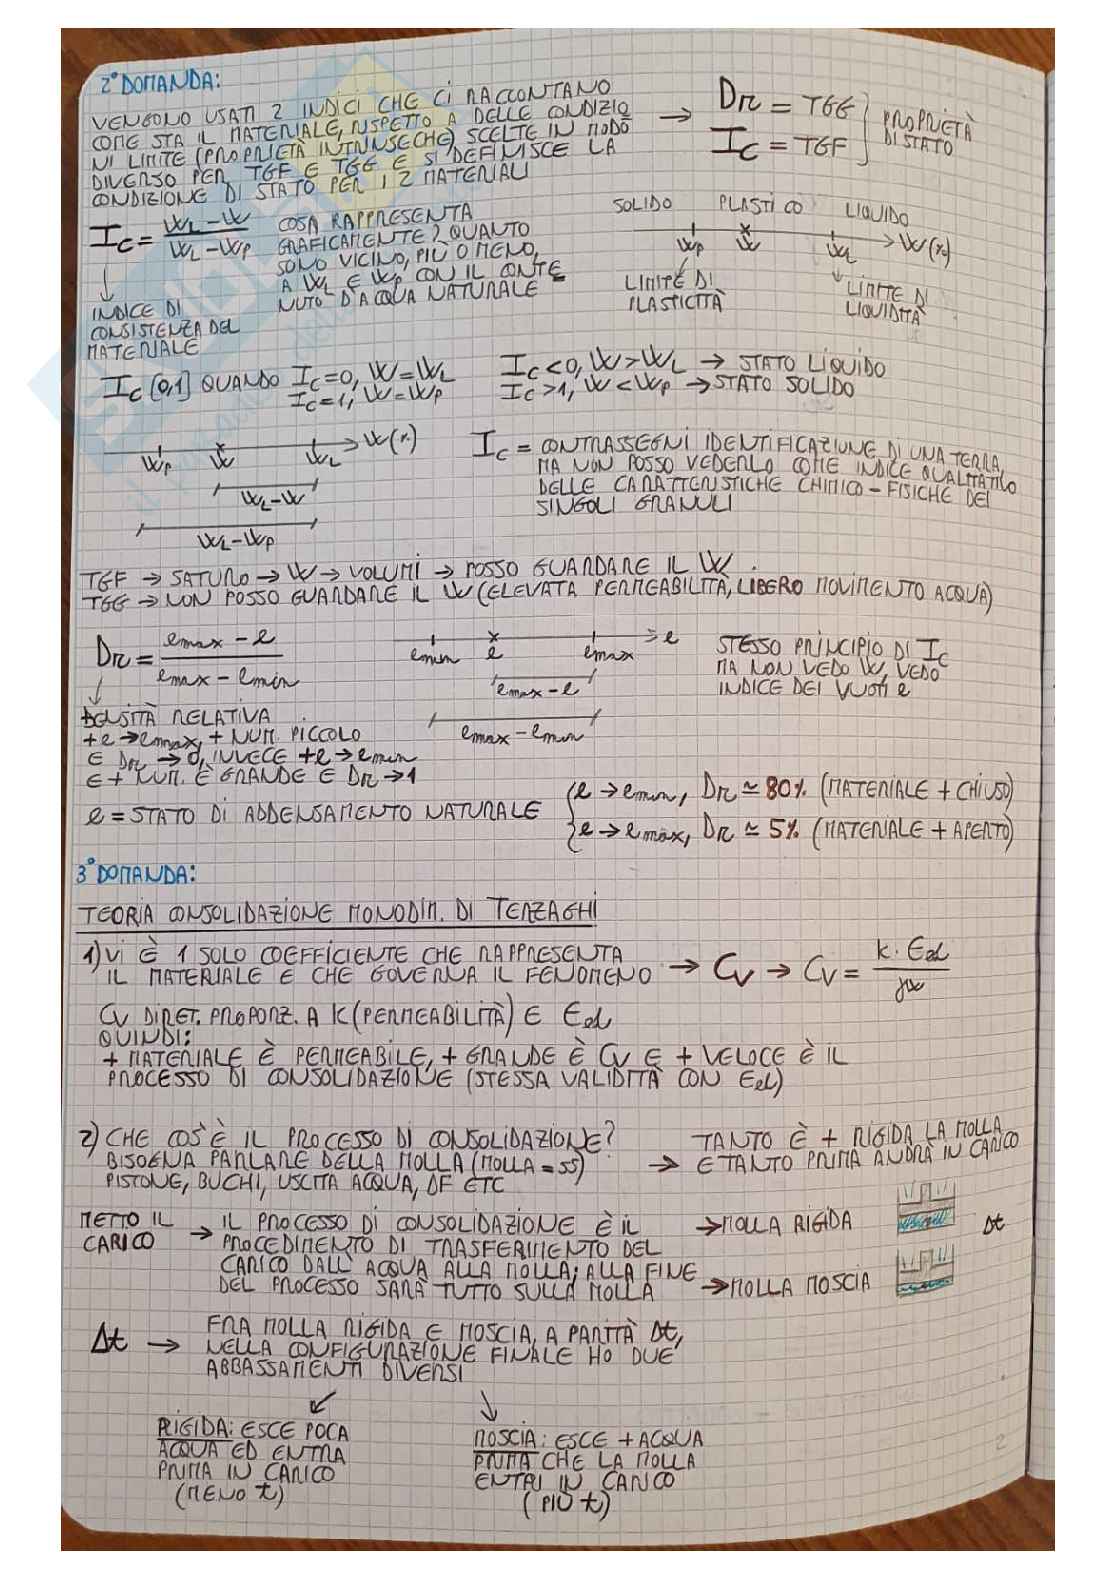 2° DOMANDA:
VENGONO USATI 2 INDICI CHE CI RACCONTANO
COME STA IL MATERIALE, RISPETTO A DELLE CONDIZIO
NI LIMITE (PROPRIETÀ INTRINSECHE) SCELTE IN MODO
DIVERSO PER TGF E TGG E SI DEFINISCE LA
CONDIZIONE DI STATO PER I 2 MATERIALI
→ Dr = TGG
Ic = TGF
PROPRIETÀ
DI STATO
Ic = (WL - W) / (WL - WP)
COSA RAPPRESENTA
GRAFICAMENTE? QUANTO
SONO VICINO, PIÙ O MENO,
A WL E WP CON IL CONTE
NUTO D'ACQUA NATURALE
↓
INDICE DI
CONSISTENZA DEL
MATERIALE
SOLIDO PLASTICO LIQUIDO
WP W WL W(%)
LIMITE DI
PLASTICITÀ
LIMITE DI
LIQUIDITÀ
Ic [0,1] QUANDO Ic=0, W=WL
Ic=1, W=WP
Ic<0, W>WL → STATO LIQUIDO
Ic>1, W<WP → STATO SOLIDO
WP W WL W(%)
WL-W
WL-WP
Ic = CONTRASSEGNI IDENTIFICAZIONE DI UNA TERRA,
MA NON POSSO VEDERLO COME INDICE QUALITATIVO
DELLE CARATTERISTICHE CHIMICO-FISICHE DEI
SINGOLI GRANULI
TGF → SATURO → W → VOLUMI → POSSO GUARDARE IL W.
TGG → NON POSSO GUARDARE IL W (ELEVATA PERMEABILITÀ, LIBERO MOVIMENTO ACQUA)
Dr = (emax - e) / (emax - emin)
emin e emax → e
emax - e
emax - emin
STESSO PRINCIPIO DI Ic
MA NON VEDO W, VEDO
INDICE DEI VUOTI e
↓
DENSITÀ RELATIVA
+e→emax, + NUM. PICCOLO
E Dr → 0, INVECE +e→emin
E + NUM. È GRANDE E Dr→1
e = STATO DI ADDENSAMENTO NATURALE
e → emin, Dr ≃ 80% (MATERIALE + CHIUSO)
e → emax, Dr ≃ 5% (MATERIALE + APERTO)
3° DOMANDA:
TEORIA CONSOLIDAZIONE MONODIM. DI TERZAGHI
1) VI È 1 SOLO COEFFICIENTE CHE RAPPRESENTA
IL MATERIALE E CHE GOVERNA IL FENOMENO → Cv → Cv = k · Eed / γw
Cv DIRET. PROPORZ. A K (PERMEABILITÀ) E Eed
QUINDI:
+ MATERIALE È PERMEABILE, + GRANDE È Cv E + VELOCE È IL
PROCESSO DI CONSOLIDAZIONE (STESSA VALIDITÀ CON Eed)
2) CHE COS'È IL PROCESSO DI CONSOLIDAZIONE?
BISOGNA PARLARE DELLA MOLLA (MOLLA = SS)
PISTONE, BUCHI, USCITA ACQUA, DF ETC
→ TANTO È + RIGIDA LA MOLLA
E TANTO PRIMA ANDRÀ IN CARICO
METTO IL
CARICO
→ IL PROCESSO DI CONSOLIDAZIONE È IL
PROCEDIMENTO DI TRASFERIMENTO DEL
CARICO DALL'ACQUA ALLA MOLLA; ALLA FINE
DEL PROCESSO SARÀ TUTTO SULLA MOLLA
→ MOLLA RIGIDA
Δt
→ MOLLA MOSCIA
Δt → FRA MOLLA RIGIDA E MOSCIA, A PARITÀ Δt,
NELLA CONFIGURAZIONE FINALE HO DUE
ABBASSAMENTI DIVERSI
RIGIDA: ESCE POCA
ACQUA ED ENTRA
PRIMA IN CARICO
(MENO t)
MOSCIA: ESCE + ACQUA
PRIMA CHE LA MOLLA
ENTRI IN CARICO
(PIÙ t)
2